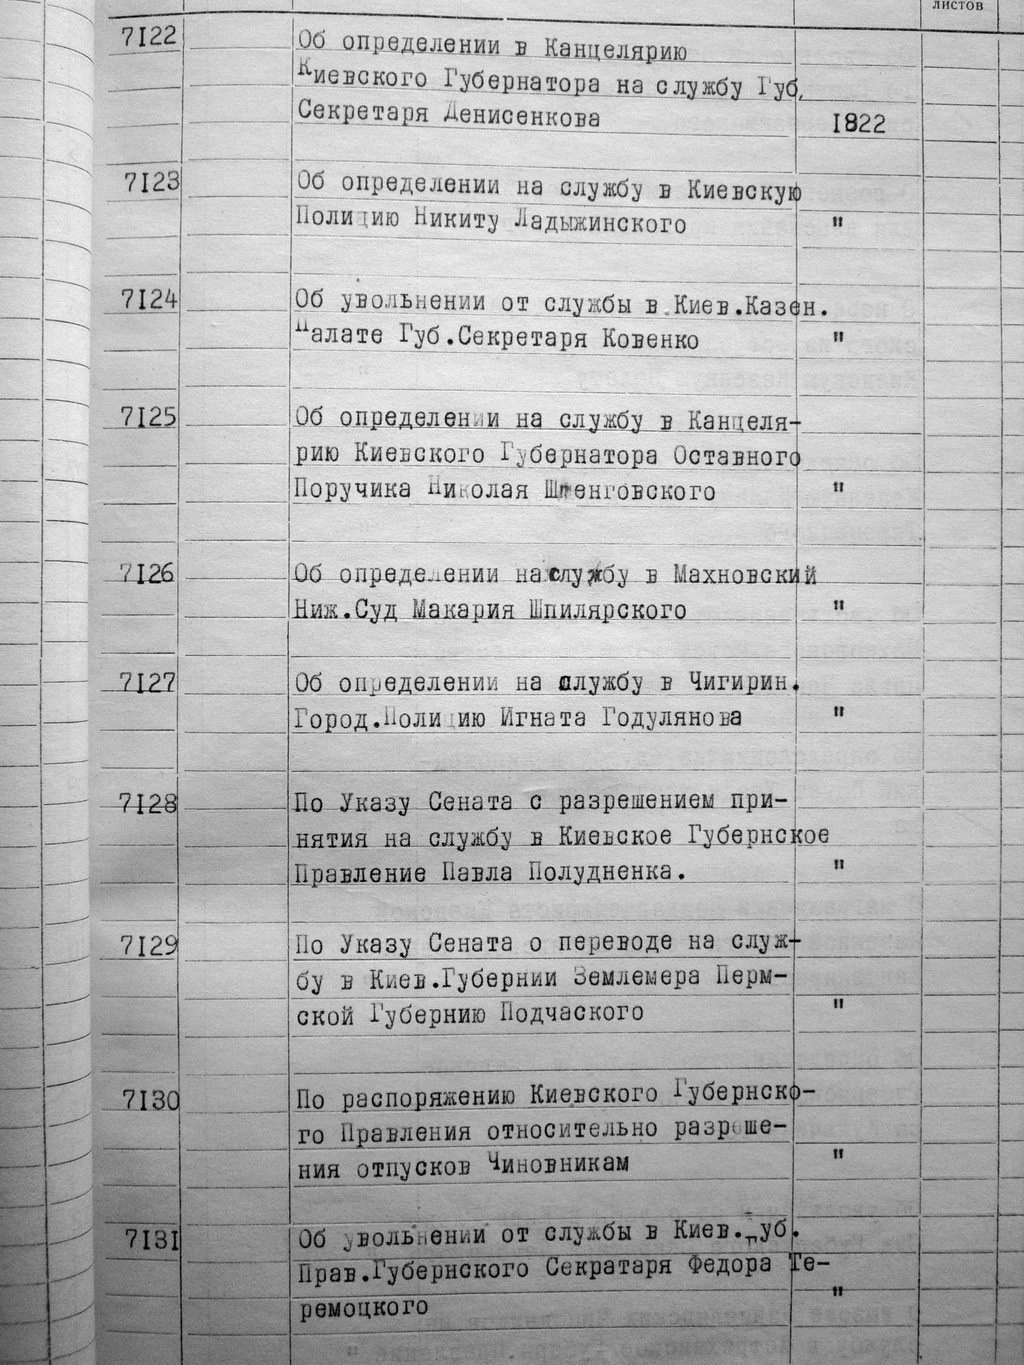 листов
7122 Об определении в Канцелярию
Киевского Губернатора на службу Губ.
Секретаря Денисенкова 1822
7123 Об определении на службу в Киевскую
Полицию Никиту Ладыжинского "
7124 Об увольнении от службы в Киев.Казен.
Палате Губ.Секретаря Ковенко "
7125 Об определении на службу в Канцеля-
рию Киевского Губернатора Оставного
Поручика Николая Штенговского "
7126 Об определении на службу в Махновский
Ниж.Суд Макария Шпилярского "
7127 Об определении на службу в Чигирин.
Город.Полицию Игната Годулянова "
7128 По Указу Сената с разрешением при-
нятия на службу в Киевское Губернское
Правление Павла Полудненка. "
7129 По Указу Сената о переводе на служ-
бу в Киев.Губернии Землемера Перм-
ской Губернию Подчаского "
7130 По распоряжению Киевского Губернско-
го Правления относительно разреше-
ния отпусков Чиновникам "
7131 Об увольнении от службы в Киев.Губ.
Прав.Губернского Секратаря Федора Те-
ремоцкого "